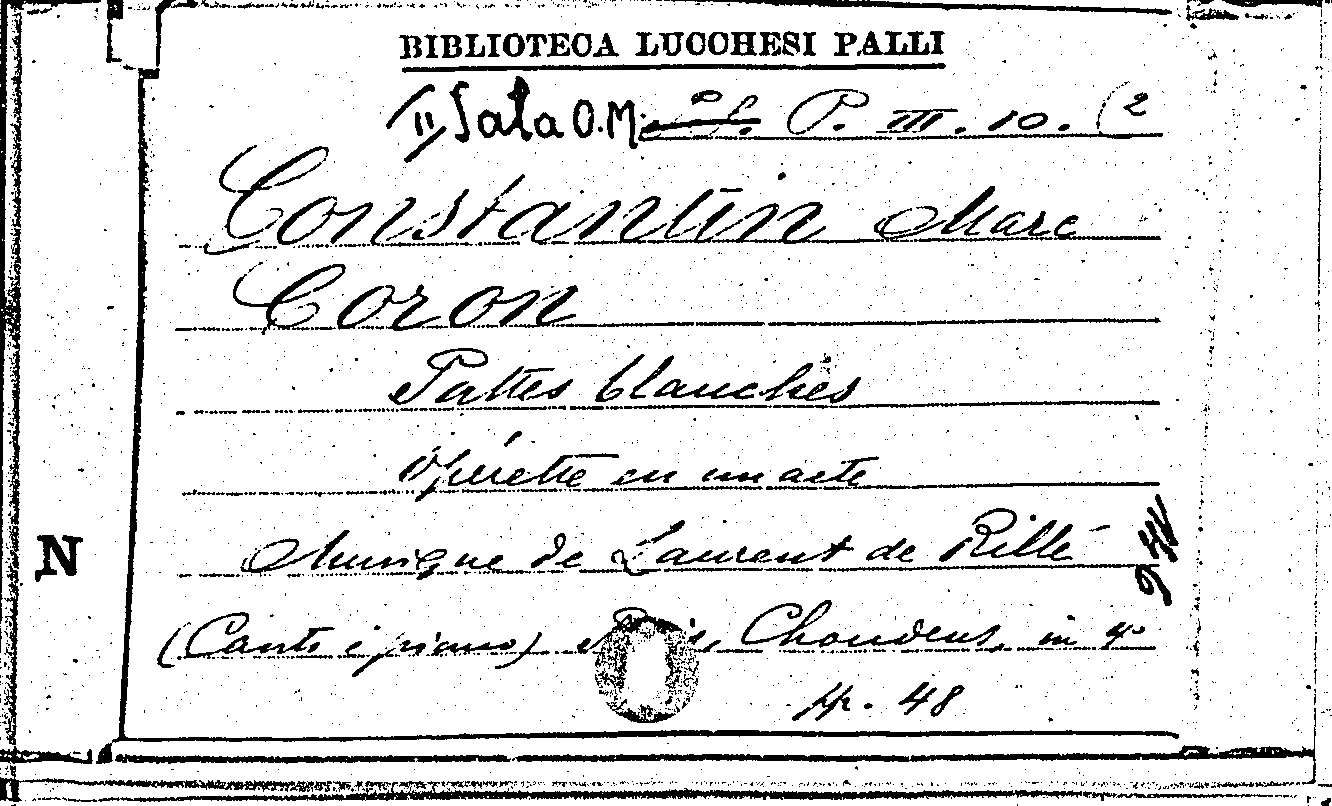 BIBLIOTECA LUCCHESI PALLI
II Sala O.M. P. III. 10. (2
Constantin Marc
Coron
Pattes blanches
Opérette en un acte
Musique de Laurent de Rillé
N
(Canto e piano) Choudens, in 4°
pp. 48